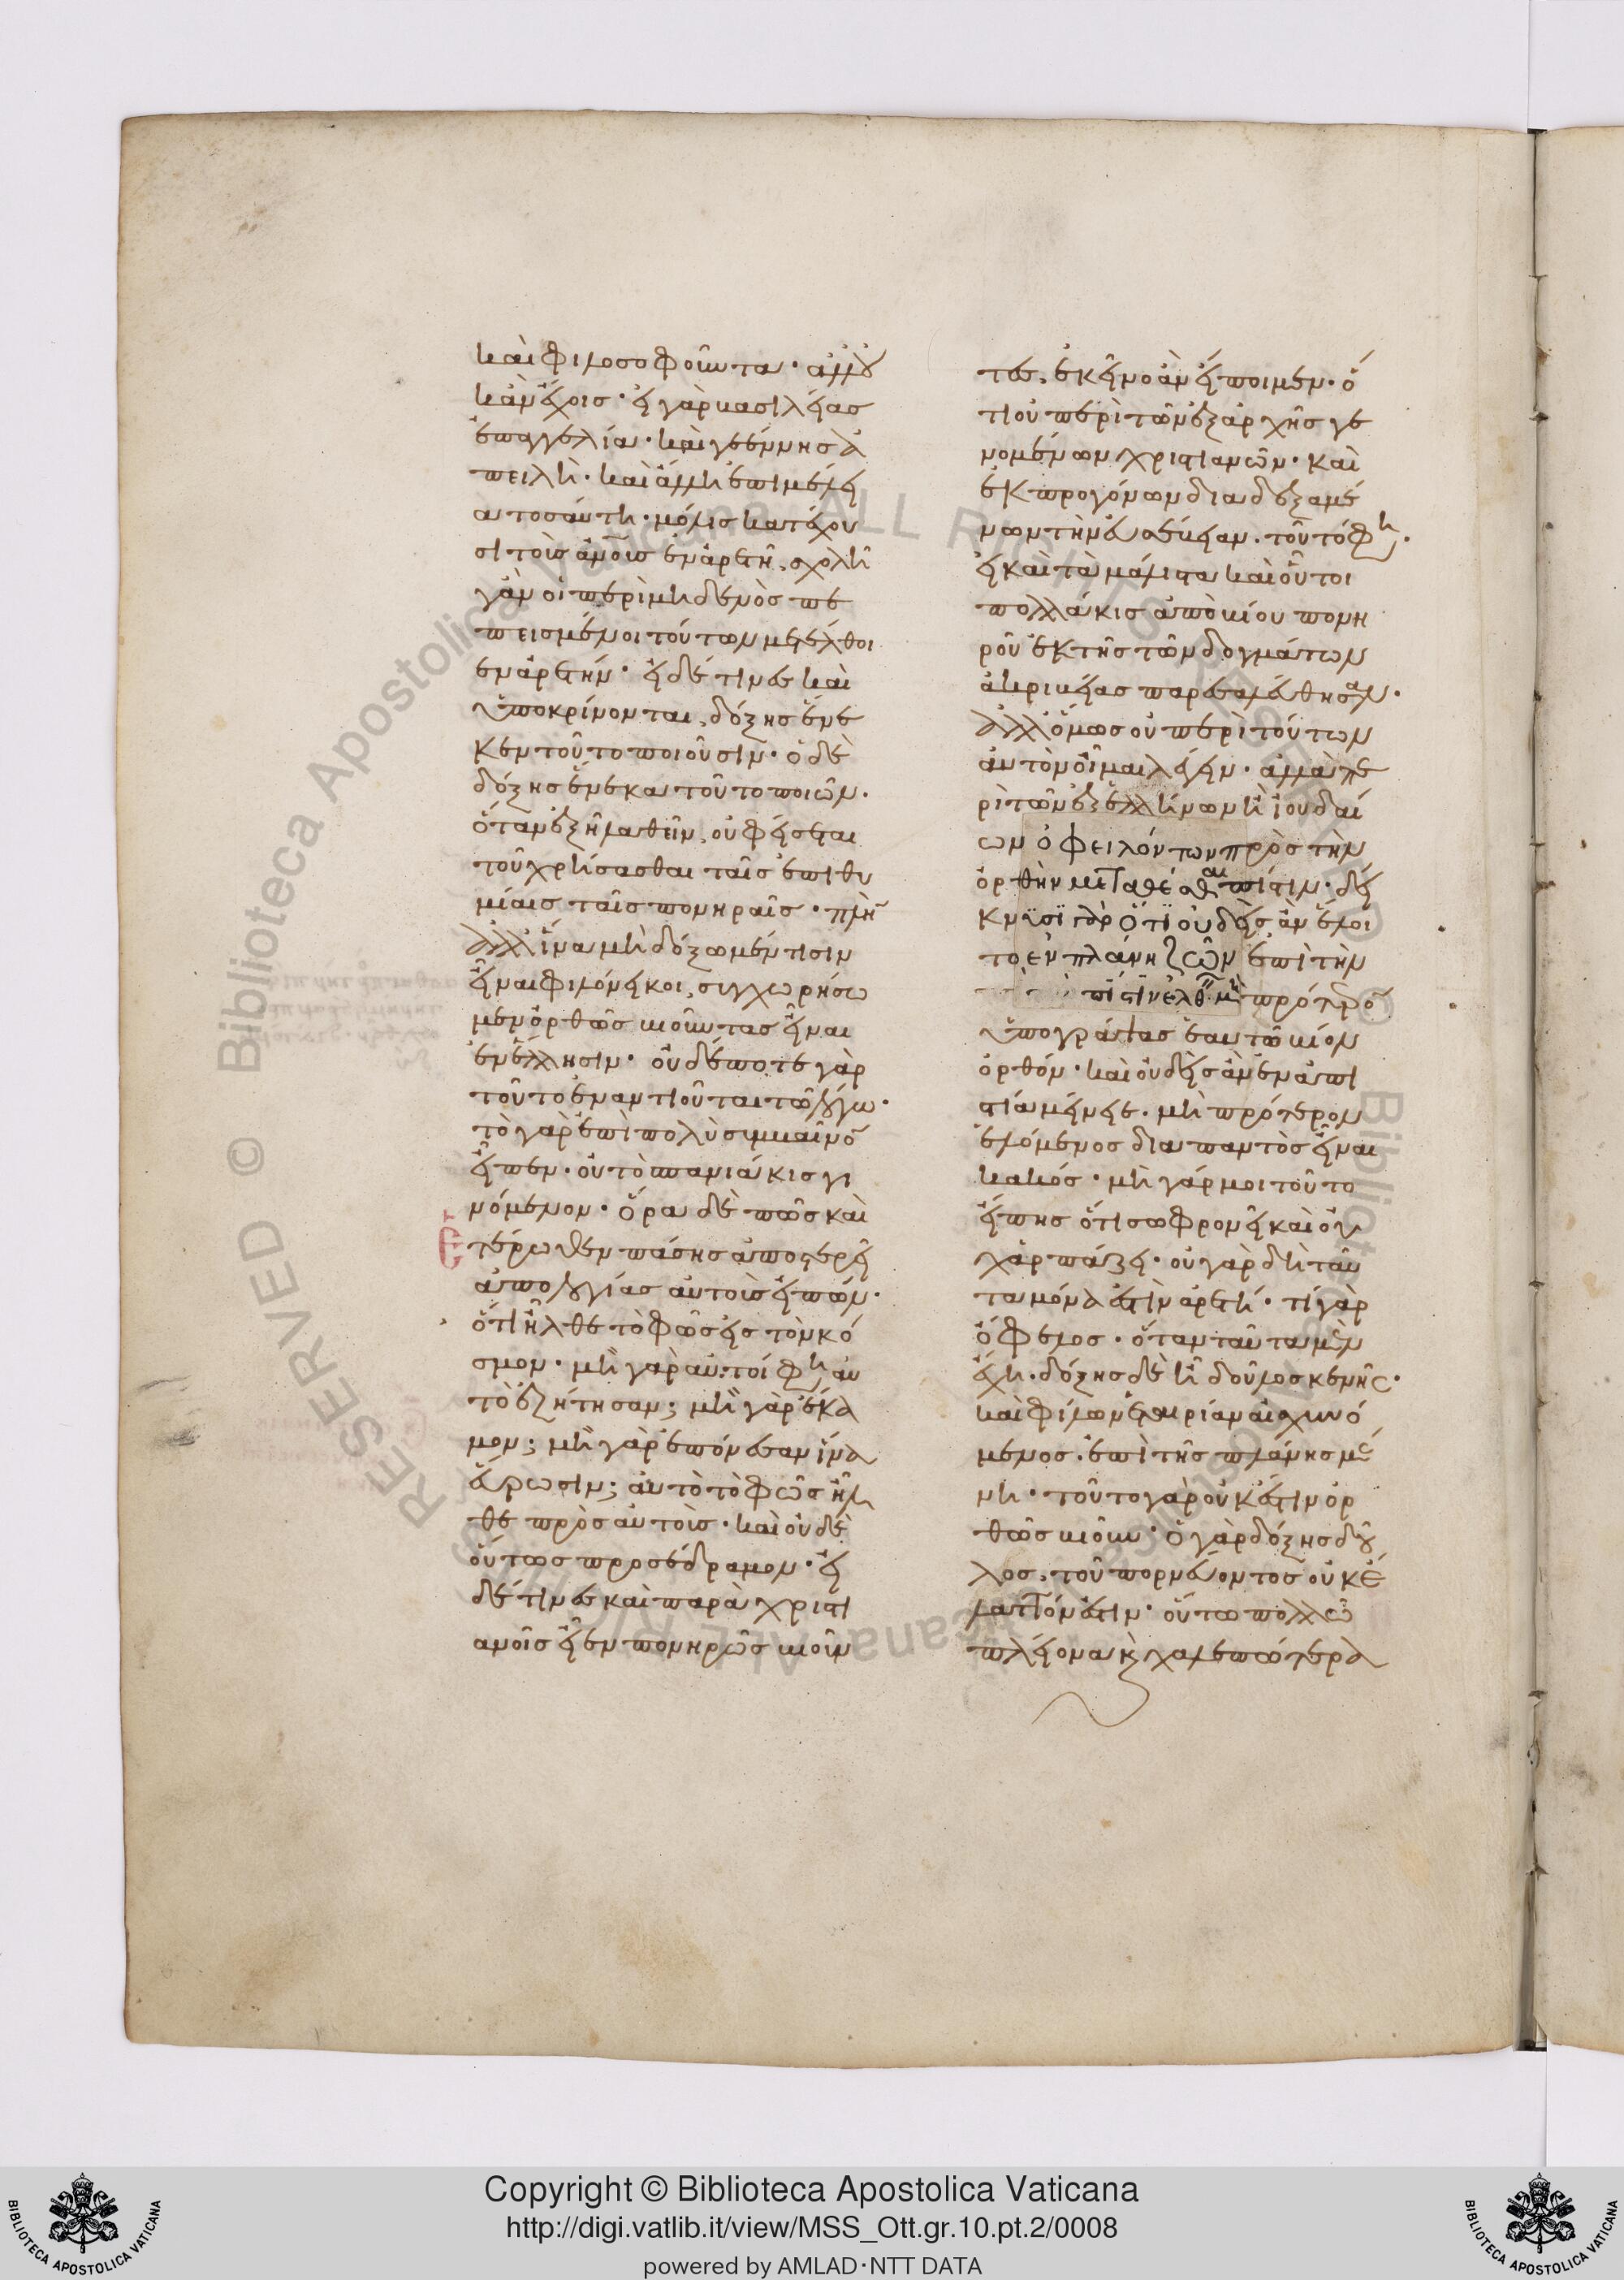 καὶ φιλοσοφοῦντα· ἀλλ' οὐ
κἀν ἔχοις· εἰ γὰρ βασιλείας
ἐπαγγελία· καὶ γεέννης ἀ
πειλὴ· καὶ ἄλλη ἐπιμέλει
α τοσαύτη· μόλις κατέχου
σι τοὺς ἀνοὺς ἐν ἀρετῆ, σχολῆ
γἂν οἱ περὶ μηδενὸς πε
πεισμένοι τούτων μετέλθοι
εν ἀρετήν· εἰ δέ τινες καὶ
ὑποκρίνονται, δόξης ἕνε
κεν τοῦτο ποιοῦσιν· ὁ δὲ
δόξης ἕνεκα τοῦτο ποιῶν.
ὅταν ἐξῆ λαθεῖν, οὐ φείσεται
τοῦ χρήσασθαι ταῖς ἐπιθυ
μίαις ταῖς πονηραῖς· πλὴν
ἀλλ' ἵνα μὴ δόξωμέν τισιν
εἶναι φιλόνεικοι, συγχωρήσω
μεν ὀρθῶς βιοῦντας εἶναι
ἐν ἕλλησιν· οὐδέποτε γὰρ
τοῦτο ἐναντιοῦται τῶ λόγω·
τὸ γὰρ ἐπὶ πολὺ συμβαῖνον
εἶπεν· οὐ τὸ σπανιάκις γι
νόμενον· ὅρα δὲ πῶς καὶ
ἑτέρωθεν πάσης ἀποστερεῖ
ἀπολογίας αὐτοὺς εἰπών·
ὅτι ἦλθε τὸ φῶς εἰς τὸν κό
σμον· μὴ γὰρ αὐτοί φη αὐ
τὸ ἐζήτησαν; μὴ γὰρ ἔκα
μον; μὴ γὰρ ἐπόνεσαν ἵνα
εὕρωσιν; αὐτὸ τὸ φῶς ἦλ
θε πρὸς αὐτοὺς· καὶ οὐδὲ
οὕτως προσέδραμον· εἰ
δέ τινες καὶ παρὰ χριστι
ανοῖς εἶεν πονηρῶς βιοῦν
τες, ἐκεῖνο ἂν εἴποιμεν· ὅ
τι οὐ περὶ τῶν ἐξ ἀρχῆς γε
νομένων χριστιανῶν· καὶ
ἐκ προγόνων διαδεξαμέ
νων τὴν εὐσέβειαν. τοῦτό φη·
εἰ καὶ τὰ μάλιστα καὶ οὗτοι
πολλάκις ἀπὸ βίου πονη
ροῦ ἐκ τῆς τῶν δογμάτων
ἀκριβείας παρεσαλεύθησαν·
ἀλλ' ὅμως οὐ περὶ τούτων
αὐτὸν οἶμαι λέγειν· ἀλλὰ πε
ρὶ τῶν ἐξ ἑλλήνων ἢ ἰουδαί
ων ὀφειλόντων πρὸς τὴν
ὀρθὴν μεταθέσθαι πίστιν· δεί
κνυσϊ γὰρ ὅτϊ οὐδεὶς ἂν ἕλοι
το ἐν πλάνη ζῶν ἐπὶ τὴν
πίστιν ἐλθεῖν μὴ πρότερον
ὑπογράψας ἑαυτῶ βίον
ὀρθόν· καὶ οὐδεὶς ἂν ἐν ἀπι
στία μείνειε. μὴ πρότερον
ἑλόμενος διαπαντὸς εἶναι
κακός· μὴ γάρ μοι τοῦτο
εἴπης ὅτι σωφρονεῖ καὶ οὐ
χ ἁρπάζει· οὐ γὰρ δὴ ταῦ
τα μόνα ἐστὶν ἀρετή· τί γὰρ
ὄφελος· ὅταν ταῦτα μὲν
ἔχη. δόξης δὲ ἦ δοῦλος κενῆς·
καὶ φίλων ἑταιρίαν αἰσχυνό
μενος. ἐπὶ τῆς πλάνης μέ
νη· τοῦτο γὰρ οὐκ ἔστιν ὀρ
θῶς βιοῦν· ὁ γὰρ δόξης δοῦ
λος, τοῦ πορνεύοντος οὐκ ἔ
λαττόν ἐστιν· οὕτω πολλῶ
πλείονα κ χαλεπώτερα